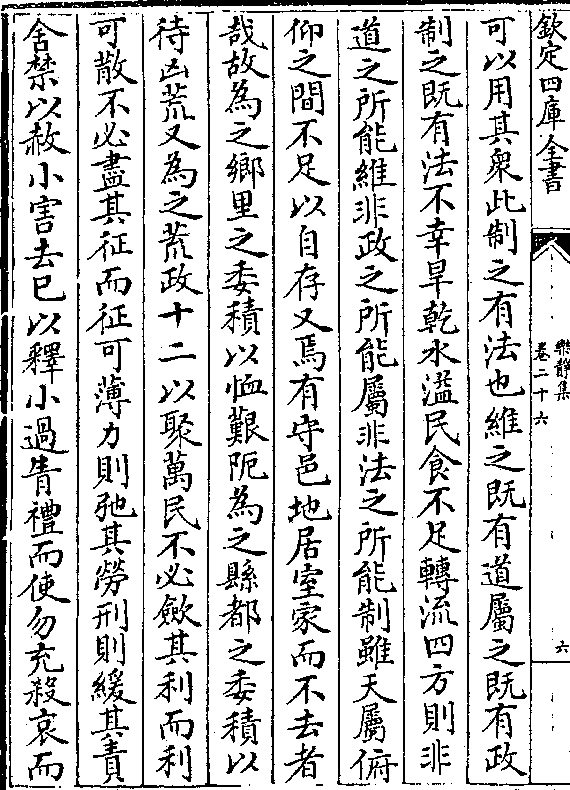 欽定四庫全書
樂靜集
卷二十六
六
可以用其衆此制之有法也維之既有道屬之既有政
制之既有法不幸旱乾水溢民食不足轉流四方則非
道之所能維非政之所能屬非法之所能制雖天屬俯
仰之間不足以自存又焉有守邑地居室家而不去者
哉故為之鄉里之委積以恤艱阨為之縣都之委積以
待凶荒又為之荒政十二以聚萬民不必歛其利而利
可散不必盡其征而征可薄力則弛其勞刑則緩其責
舍禁以赦小害去已以釋小過眚禮而使勿充殺哀而